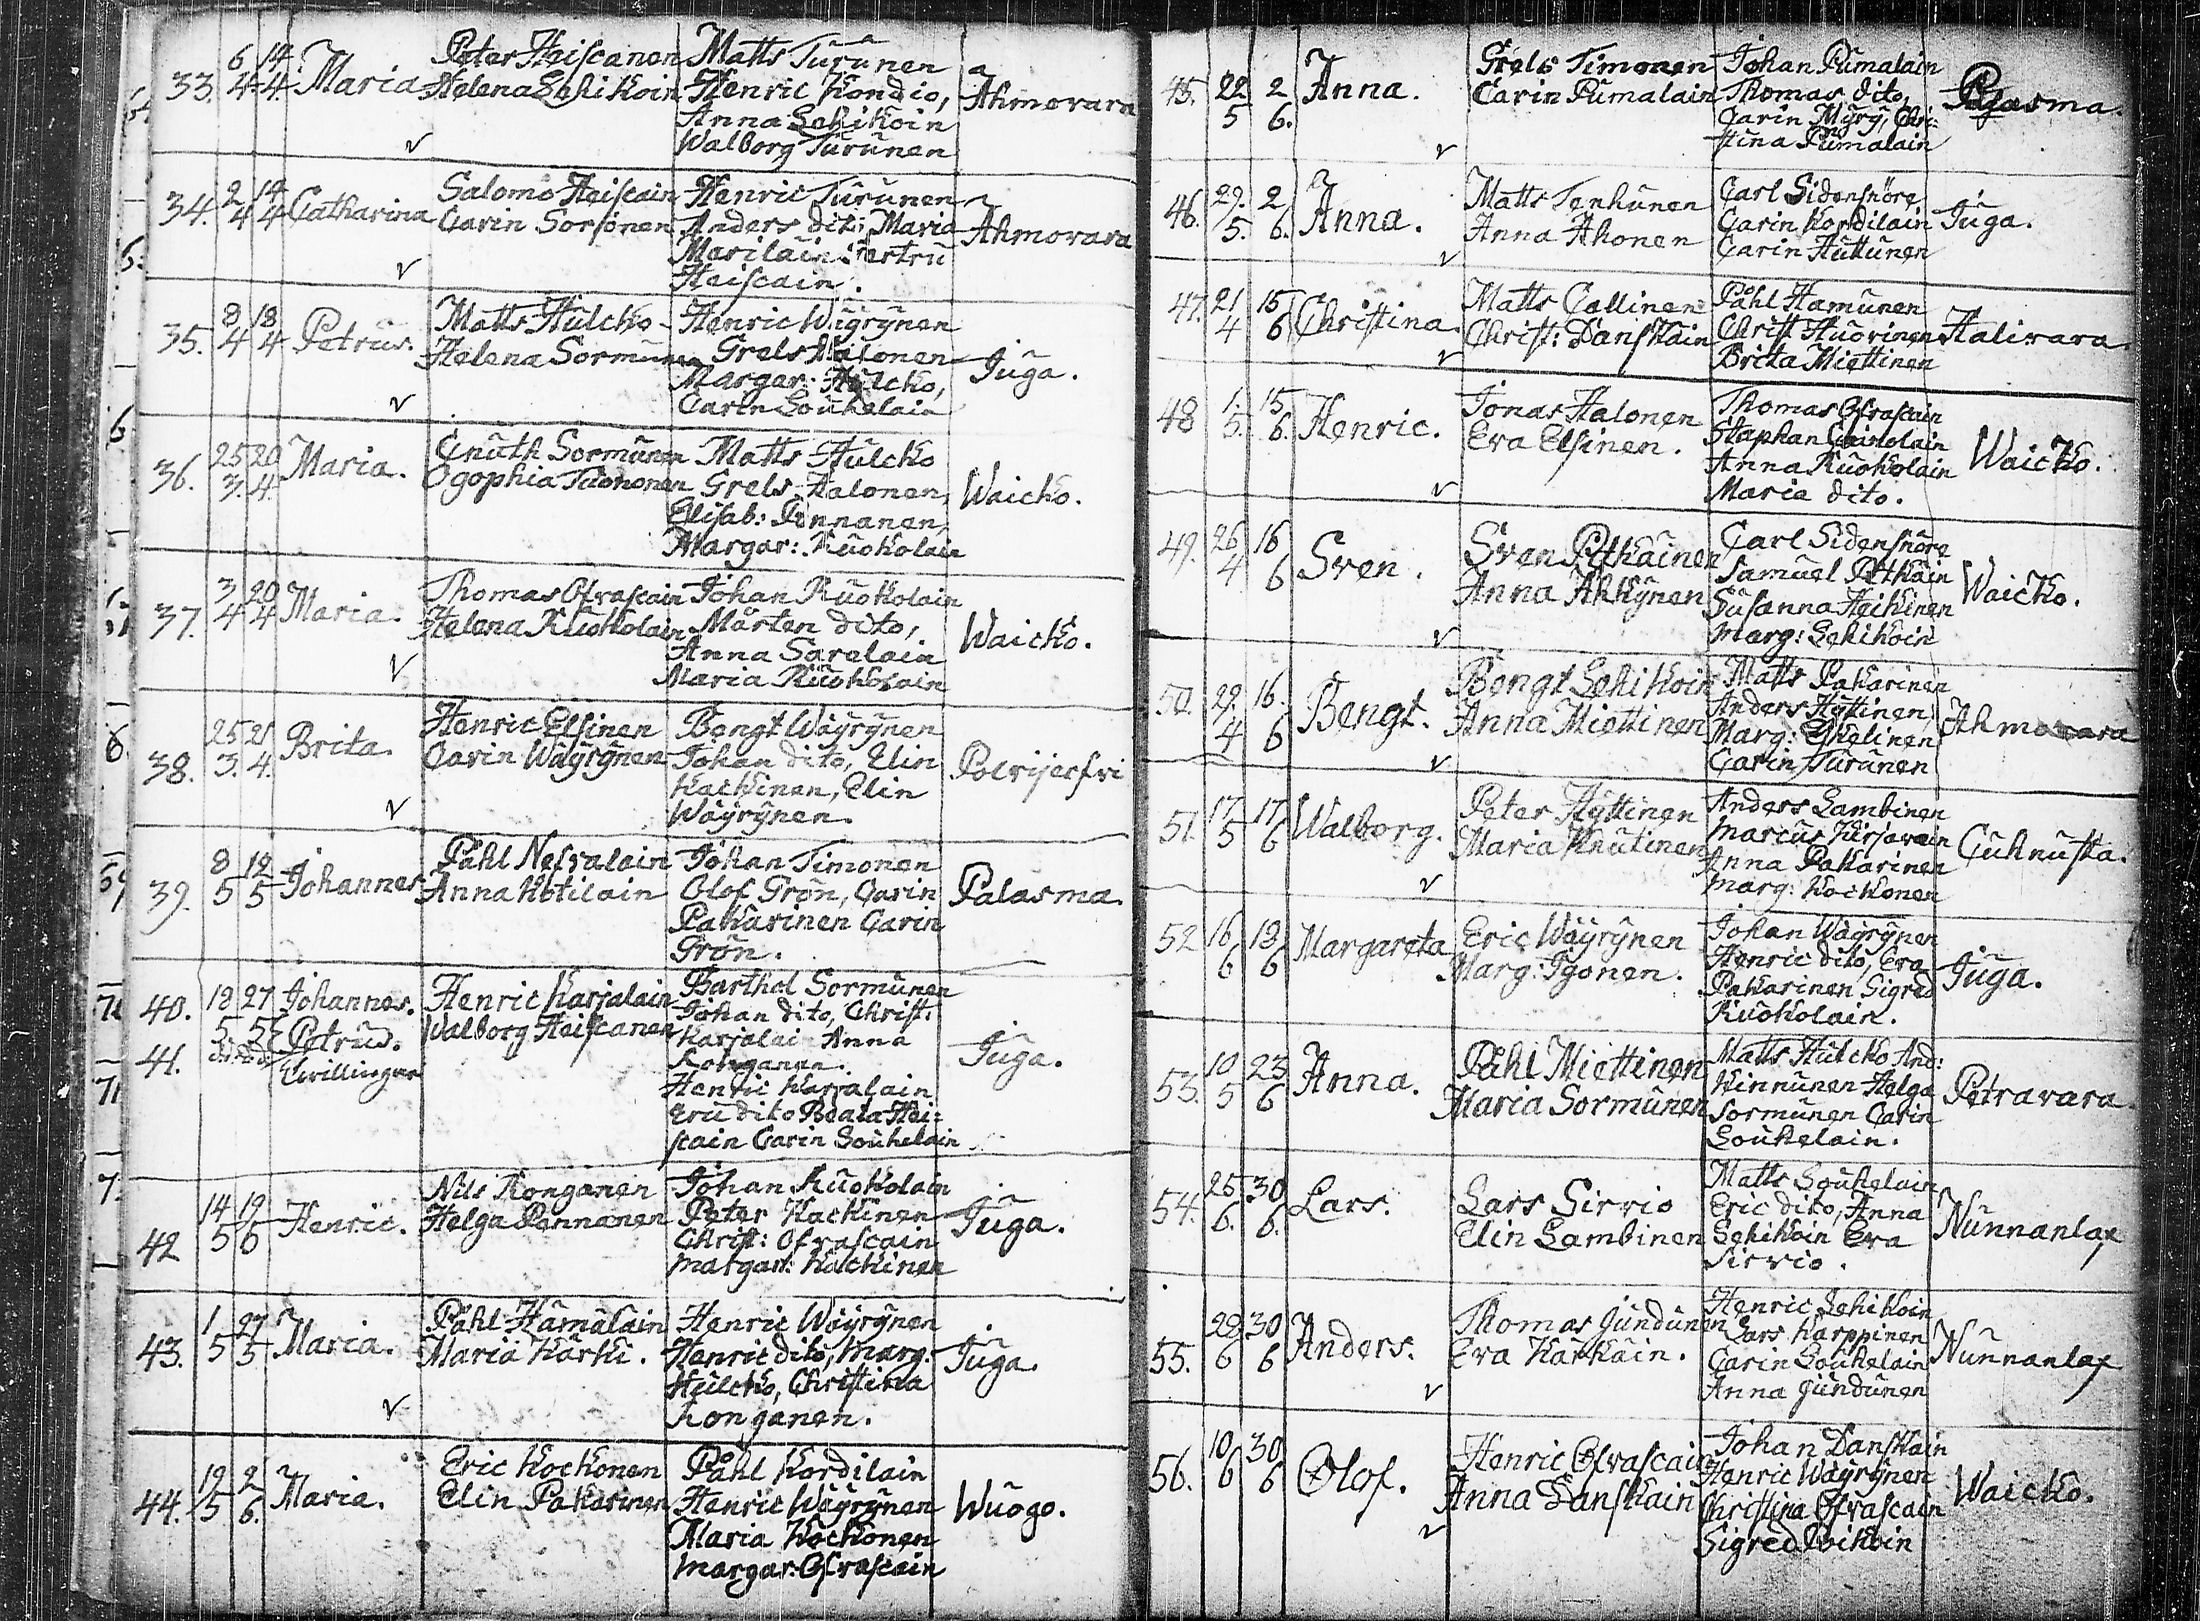 33. 6/4 14/4 Maria Peter Heiscanen Matts Turunen
Helena Lehikoin Henric Kondio, Ahmovara
Anna Lehikoin
Walborg Turunen
34. 2/4 14/4 Catharina Salomo Heiscain Henric Turunen
Carin Sorsonen Anders dito Maria Ahmovara
Marilain
Heiscain.
35. 8/4 18/4 Petrus. Matts Hulcko Henric Wäyrynen
Helena Sormunen Grels Halonen Juga.
Margar: Hulcko,
Carin Louhelain
36. 25/3 20/4 Maria. Cnuth Sormunen Matts Hulcko
Ogophia Tuononen Grels Halonen, Waicko.
Elisab: Pennanen,
Margar: Kuokolain
37. 3/4 20/4 Maria. Thomas Ofvascain Johan Kuokolain
Helena Kuokolain Mårten dito, Waicko.
Anna Savelain
Maria Kuokolain
38. 25/3 21/4 Brita. Henric Elsinen Bengt Wäyrynen
Carin Wäyrynen Johan dito, Elin
Kackinen, Elin
Wäyrynen.
39. 8/5 12/5 Johannes Påhl Nefvalain Johan Timonen
Anna Kotilain Olof Grön, Carin Palasma.
Pakarinen Carin
Grön.
40. 18/5 27/5 Johannes. Henric Karjalain Barthol Sormunen
41. Petrus. Walborg Heiscanen Johan dito, Christ:
Tvillingar Karjalain Anna Juga.
Konganen.
Henric Karjalain
dito Beata Hei-
scain Carin Louhelain
42 14/5 19/5 Henric. Nils Konganen Johan Kuokolain
Helga Pennanen Peter Kackinen Juga.
Christ: Ofvascain
Margar: Kackinen
43. 1/5 27/5 Maria. Påhl Hämäläin Henric Wäyrynen
Maria Kärki. Henric dito, Marg: Juga.
Hulcko, Christina
Konganen.
44. 19/5 2/6. Maria. Eric Kockonen Påhl Kordilain
Elin Pakarinen Henric Wäyrynen Wuogo.
Maria Kockonen
Margar: Ofvascain
45. 22/5 2/6. Anna. Grels Timonen Johan Pumalain
Carin Pumalain Thomas dito, Palasma.
Carin Myry, Chri-
stina Pumalain
46. 29/5. 2/6. Anna. Matts Tenhunen Carl Sidensnöre
Anna Ahonen Carin Kordilain Juga.
Carin Huttunen
47. 21/4 15/6 Christina. Matts Callinen Påhl Hamunen
Christ: Danskain Christ Huovinen Halivara.
Brita Miettinen
48 1/5. 15/6. Henric. Jonas Halonen Thomas Ofvascain
Eva Elsinen. Staphan
Anna Kuokolain Waicko.
Maria dito.
49. 26/4 16/6 Sven. Sven Pitkäinen Carl Sidensnöre
Anna Ahkynen Samuel Pitkäin Waicko.
Susanna Heikinen
Marg: Lehikoin
50. 29/4 16/6 Bengt. Bengt Lehikoin Matts Pakarinen
Anna Miettinen Anders Hyttinen, Ahmovara
Marg:
Carin Turunen
51. 17/5 17/6 Walborg. Peter Hyttinen Anders Lambinen
Maria Knutinen Marcus Cuhnusta.
Anna Pakarinen
Marg: Kockonen
52 16/6 18/6 Margareta Eric Wäyrynen Johan Wäyrynen
Marg: Igonen. Henric dito, Eva Juga.
Pakarinen Sigred
Kuokolain.
53. 10/5 23/6 Anna. Påhl Miettinen Matts Hulcko And:
Maria Sormunen Kinnunen Helga Petravara.
Sormunen Carin
Louhelain.
54. 25/6. 30/6. Lars. Lars Sirvio Matts Louhelain
Elin Lambinen Eric dito, Anna Nunnanlax
Lehikoin Eva
Sirvio.
55. 22/6 30/6 Anders. Thomas Jundunen Henric Lehikoin
Eva Karkäin. Lars Karppinen Nunnanlax
Carin Louhelain
Anna Jundunen
56. 10/6 30/6 Olof. Henric Ofvascain Johan Danskain
Anna Danskain Henric Wäyrynen Waicko.
Christina Ofvascain
Sigred